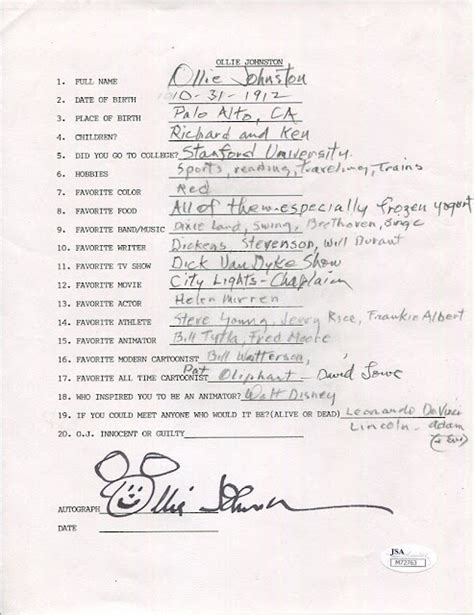 OLLIE JOHNSTON
1. FULL NAME Ollie Johnston
2. DATE OF BIRTH 10-31-1912
3. PLACE OF BIRTH Palo Alto, CA
4. CHILDREN? Richard and Ken
5. DID YOU GO TO COLLEGE? Stanford University
6. HOBBIES Sports, reading, traveling, Trains
7. FAVORITE COLOR Red
8. FAVORITE FOOD All of them-especially frozen yogurt
9. FAVORITE BAND/MUSIC Dixie Land, Swing, Beethoven,
10. FAVORITE WRITER Dickens, Stevenson, Will Durant
11. FAVORITE TV SHOW Dick Van Dyke Show
12. FAVORITE MOVIE City Lights-Chaplain
13. FAVORITE ACTOR Helen Mirren
14. FAVORITE ATHLETE Steve Young, Jerry Rice, Frankie Albert
15. FAVORITE ANIMATOR Bill Tytla, Fred Moore
16. FAVORITE MODERN CARTOONIST Bill Watterson,
17. FAVORITE ALL TIME CARTOONIST Pat Oliphart - David Lowe
18. WHO INSPIRED YOU TO BE AN ANIMATOR? Walt Disney
19. IF YOU COULD MEET ANYONE WHO WOULD IT BE?(ALIVE OR DEAD) Leonardo DaVinci
Lincoln - Adam
(& Eve)
20. O.J. INNOCENT OR GUILTY
AUTOGRAPH Ollie Johnston
DATE
JSA
M72763